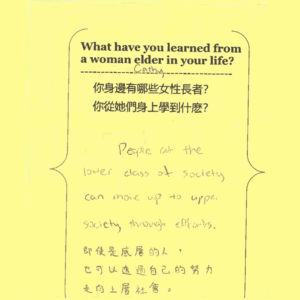 What have you learned from
a woman elder in your life?
Cathy
你身邊有哪些女性長者?
你從她們身上學到什麼?
People at the
lower class of society
can move up to upper
society through efforts.
即使是底層的人,
也可以透過自己的努力
走向上層社會。